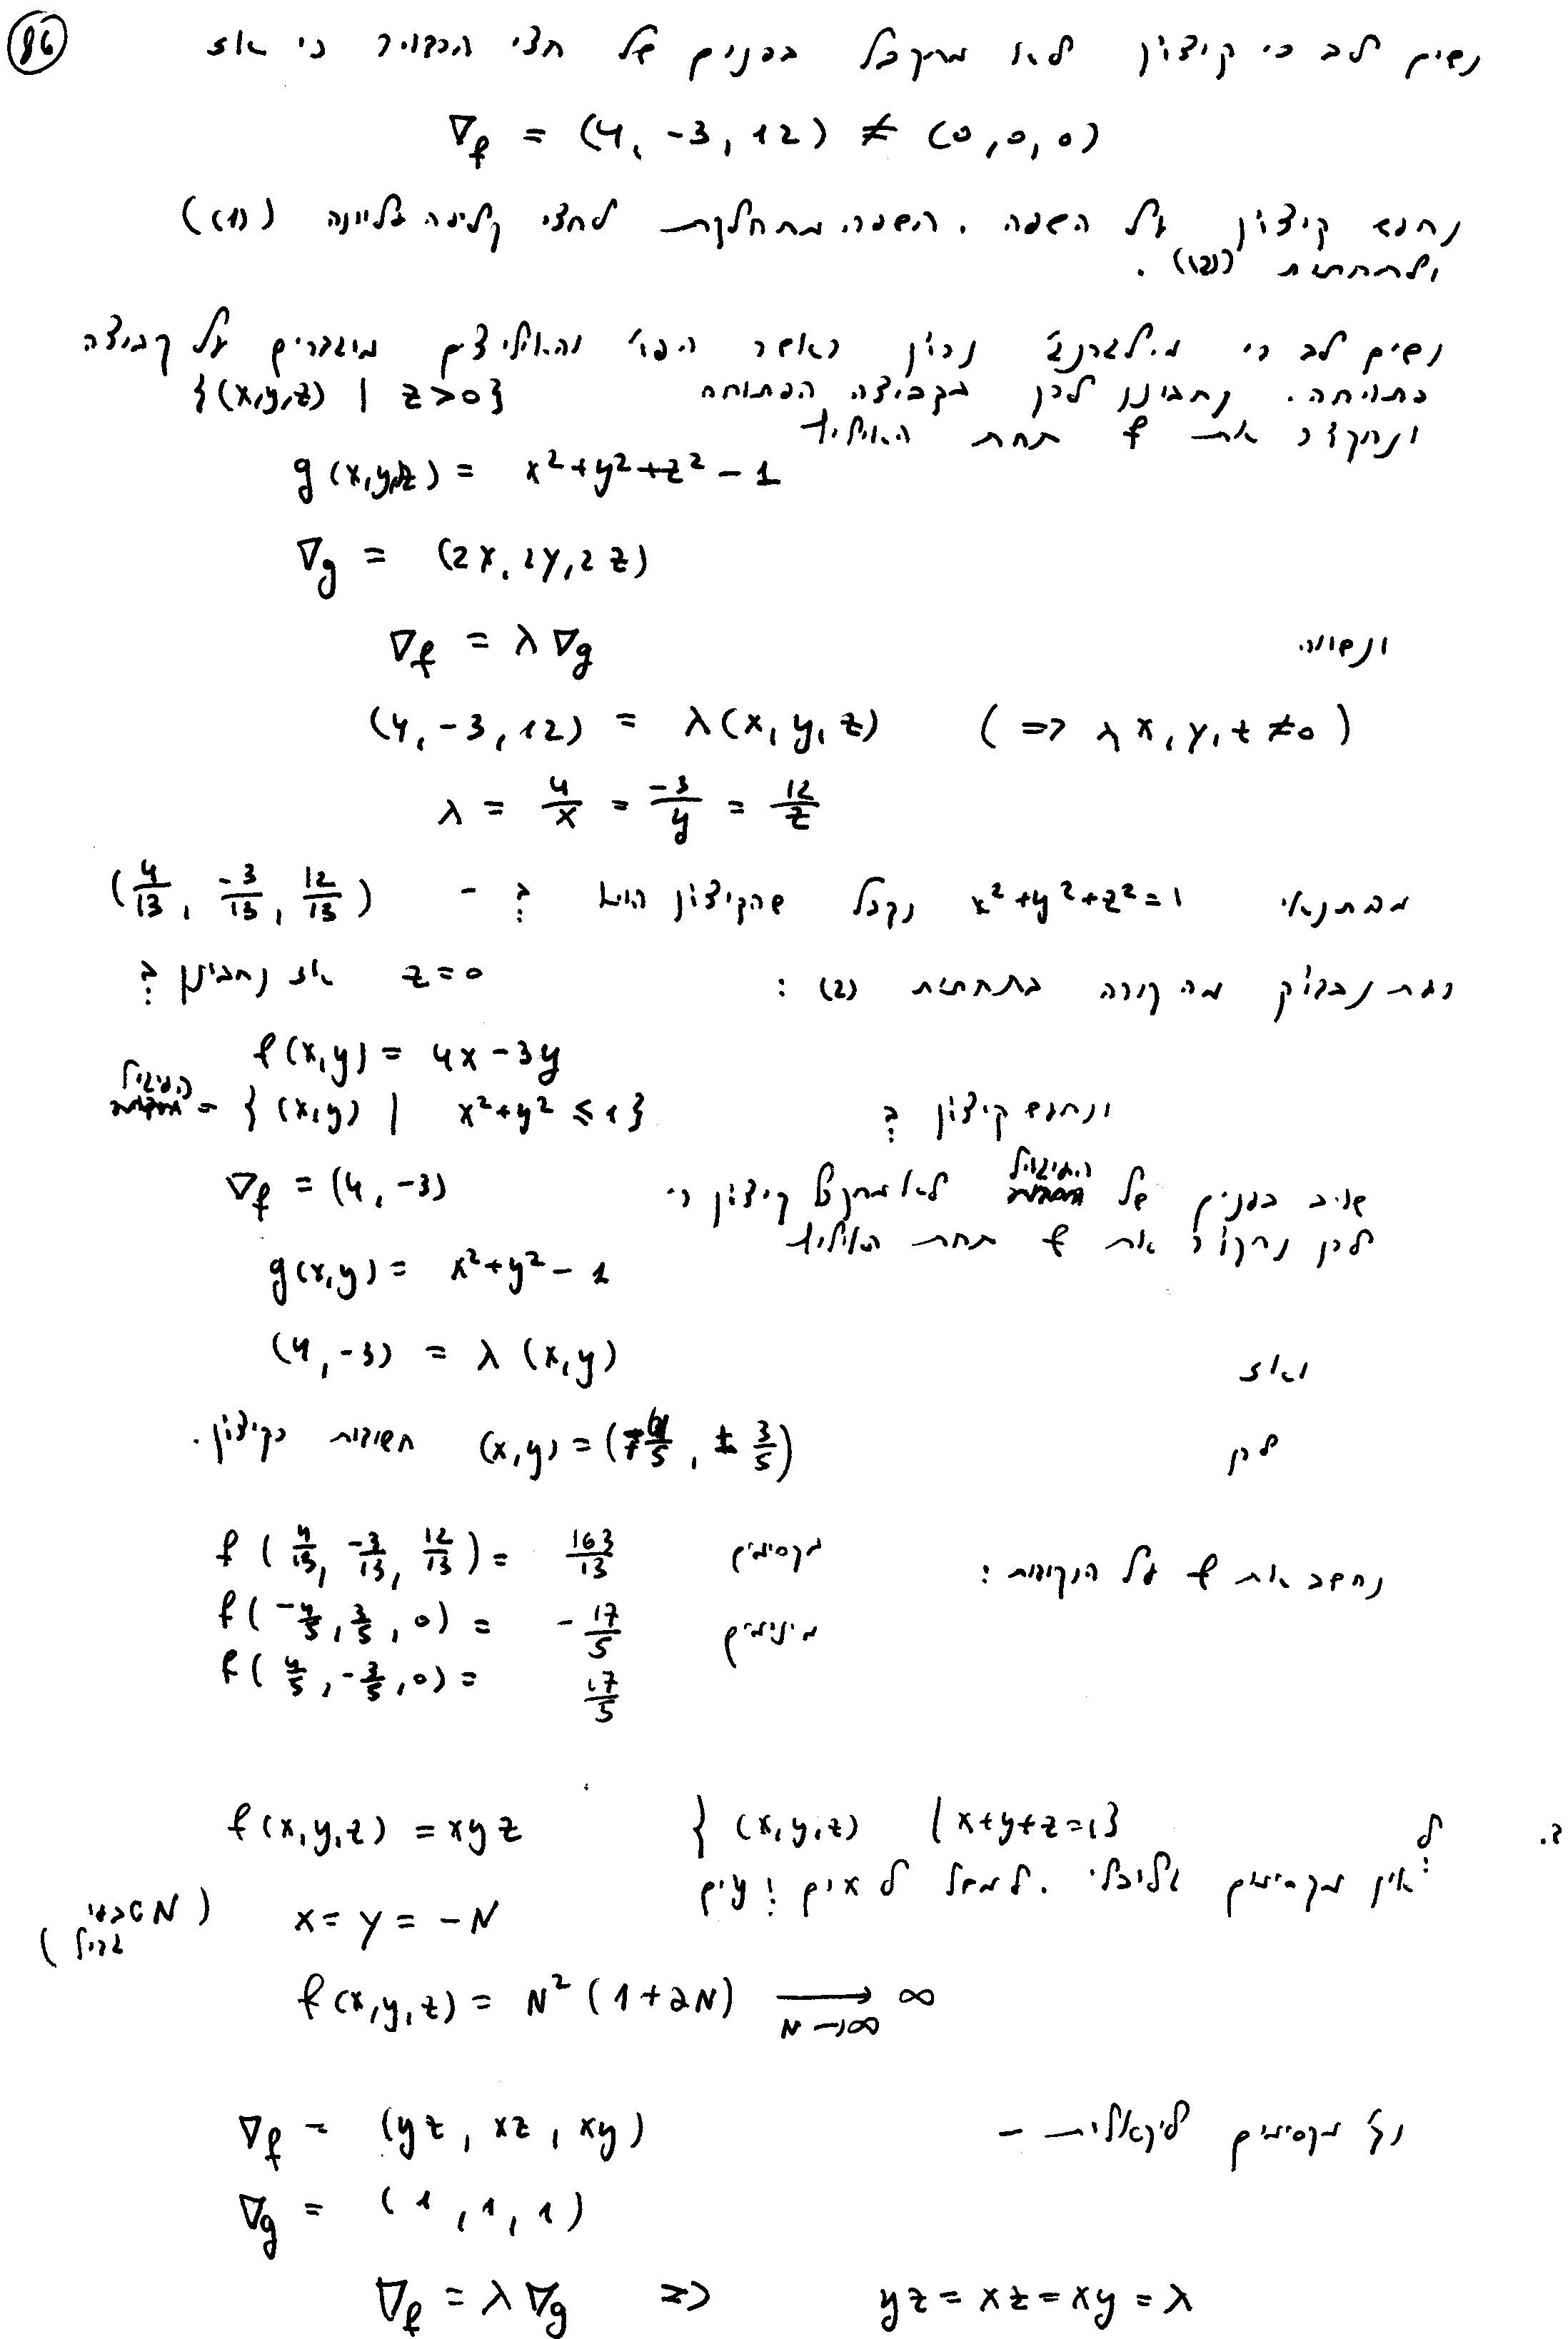 86
נשים לב כי קיצון לא מתקבל בפנים של חצי הכדור כי אז
∇f = (4, -3, 12) ≠ (0,0,0)
נחפש קיצון על השפה. השפה מתחלקת לחצי קליפה עליונה ((1))
ולתחתית ((2)).
נשים לב כי לגרנג' נכון כאשר הפו' והאילוצים מוגדרים על קבוצה
פתוחה. נתבונן לכן בקבוצה הפתוחה {(x,y,z) | z>0}
ונחקור את f תחת האילוץ
g(x,y,z) = x²+y²+z²-1
∇g = (2x, 2y, 2z)
ונשווה ∇f = λ∇g
(4, -3, 12) = λ(x, y, z) (=> λ x, y, z ≠0)
λ = 4/x = -3/y = 12/z
מהתנאי x²+y²+z²=1 נקבל שהקיצון הוא ב- (4/13, -3/13, 12/13)
כעת נבדוק מה קורה בתחתית (2): z=0 אז נתבונן ב
f(x,y) = 4x-3y
ונחפש קיצון ב העיגול = {(x,y) | x²+y² ≤ 1}
שוב בפנים של העיגול לא מתקבל קיצון כי ∇f = (4, -3)
לכן נחקור את f תחת האילוץ
g(x,y) = x²+y²-1
ואז (4, -3) = λ(x,y)
לכן (x,y) = (∓4/5, ±3/5) חשודות כקיצון.
נחשב את f על הנקודות: f(4/13, -3/13, 12/13) = 163/13 מקסימום
f(-4/5, 3/5, 0) = -17/5 מינימום
f(4/5, -3/5, 0) = 17/5
ב. {(x,y,z) | x+y+z=1} f(x,y,z) = xyz
אין מקסימום גלובלי. למשל עם x = y = -N (N טבעי גדול)
f(x,y,z) = N²(1+2N) → ∞
N→∞
מקסימום לוקאלית - ∇f = (yz, xz, xy)
∇g = (1, 1, 1)
∇f = λ∇g => yz = xz = xy = λ